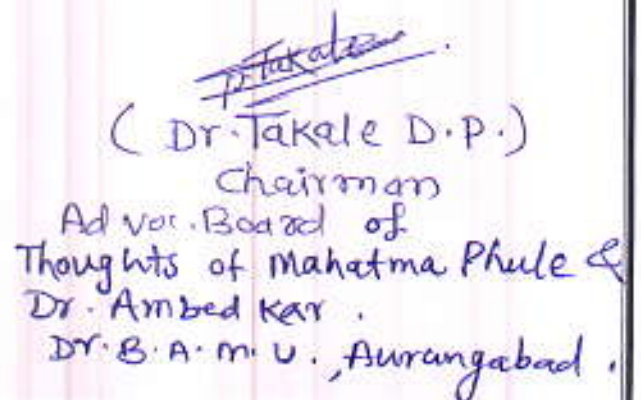 D.Takale
( Dr. Takale D.P.)
Chairman
Ad voc. Board of
Thoughts of Mahatma Phule &
Dr. Ambedkar.
Dr. B. A. M. U., Aurangabad.